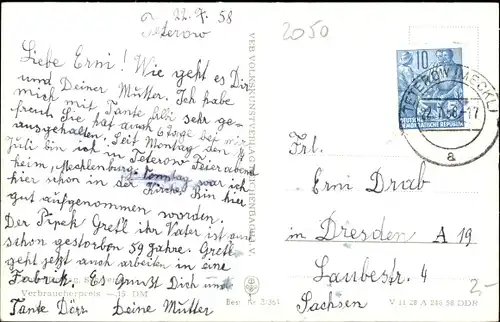 22.7.58
Teterow
2050
Liebe Erni! Wie geht es Dir
und Deiner Mutter. Ich habe
mich mit Tante
freut Sie hat auch 6 Tage bei mir
ausgehalten. Seit Montag den 7
Juli bin ich in Teterow Feierabend
heim, Mecklenburg. Sonntag war ich
hier schon in der Kirche, Bin hier
gut aufgenommen worden.
Der Pipek Gretl ihr Vater ist auch
schon gestorben 59 Jahre. Gretl
geht jetzt auch arbeiten in eine
Fabrik. Es grußt Dich und
Verbraucherpreis — 15 DM
Tante Dörr. Deine Mutter
Best. Nr. 2/361
VEB VOLKSKUNSTVERLAG REICHENBACH I. V.
10
DEUTSCHE
DEMOKRATISCHE REPUBLIK
TETEROW (MECKL)
-17
a
Frl.
Erni Drab
in Dresden A 19
Laubestr. 4
Sachsen
2-
V 11 28 A 246 58 DDR